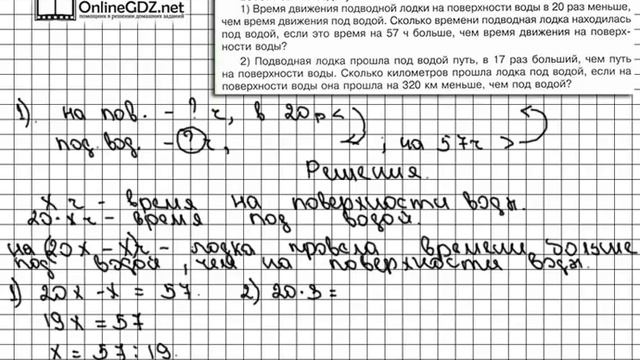 OnlineGDZ.net
помощник в решении домашних заданий
1) Время движения подводной лодки на поверхности воды в 20 раз меньше,
чем время движения под водой. Сколько времени подводная лодка находилась
под водой, если это время на 57 ч больше, чем время движения на поверх-
ности воды?
2) Подводная лодка прошла под водой путь, в 17 раз больший, чем путь
на поверхности воды. Сколько километров прошла лодка под водой, если на
поверхности воды она прошла на 320 км меньше, чем под водой?
1). на пов. - ? ч, в 20 р <
под. вод. - ? ч, ; на 57ч >
Решения.
х ч - время на поверхности воды.
20·х ч - время под водой.
на (20х - х)ч - лодка провела времени больше
под водой, чем на поверхности воды.
1) 20х - х = 57. 2) 20·3 =
19х = 57
х = 57 : 19.